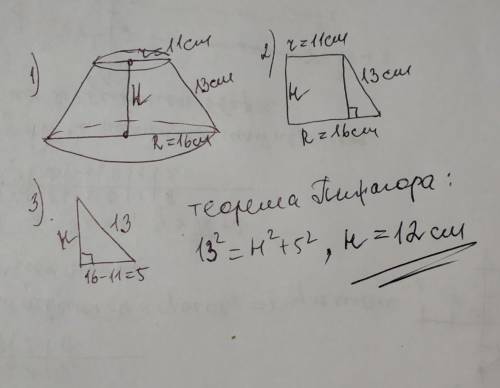 1)
r=11см
13см
H
R=16см
2)
r=11см
13см
H
R=16см
3)
H
13
16-11=5
теорема Пифагора:
13²=H²+5², H=12см